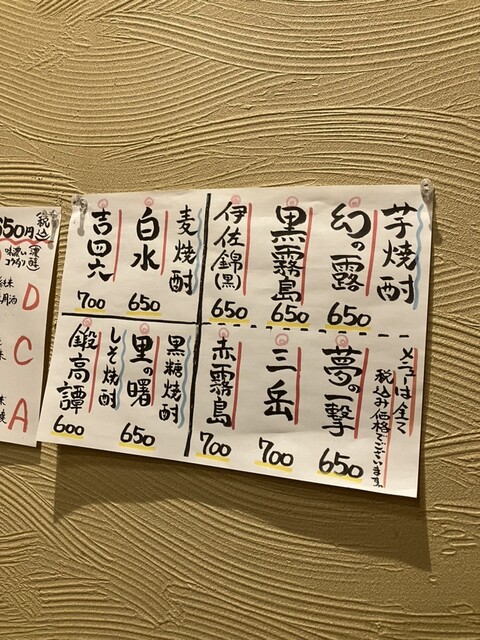 芋焼酎
幻の露
650
黒霧島
650
伊佐錦(黒)
650
メニューは全て
税込み価格でございます。
夢の一撃
650
三岳
700
赤霧島
700
麦焼酎
白水
650
吉四六
700
黒糖焼酎
里の曙
650
しそ焼酎
鍛高譚
600
650円
税込
D
C
A